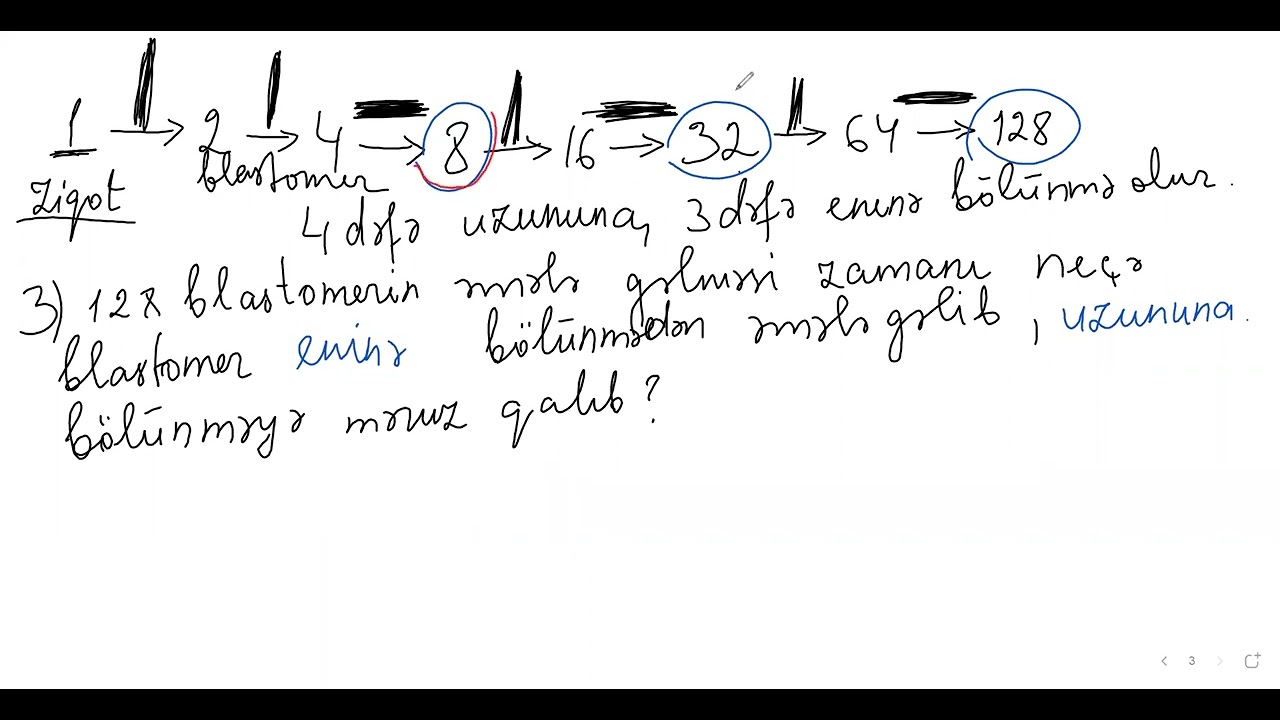 1 → 2 → 4 → 8 → 16 → 32 → 64 → 128
Ziqot blastomer
4 dəfə uzununa, 3 dəfə eninə bölünmə olur.
3) 128 blastomerin əmələ gəlməsi zamanı neçə
blastomer eninə bölünmədən əmələ gəlib, uzununa
bölünməyə məruz qalıb?
3